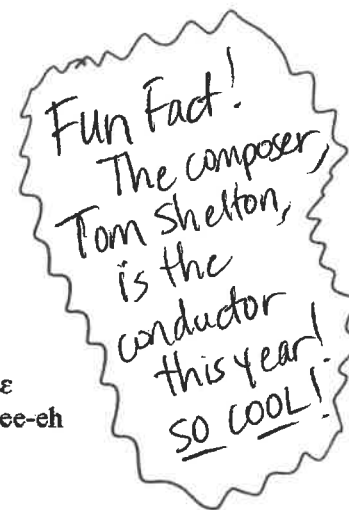 Fun Fact!
The composer,
Tom Shelton,
is the
conductor
this year!
SO COOL!
ε
ee-eh